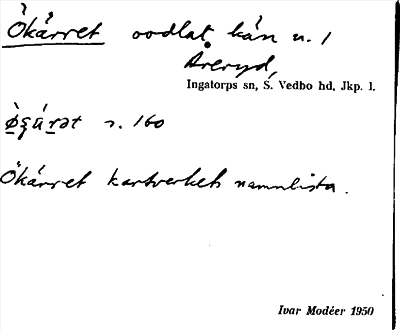 Ökärret oodlat kärr n. 1
Åreryd,
Ingatorps sn, S. Vedbo hd, Jkp. l.
s. 160
Ökärret kartverkets namnlista.
Ivar Modéer 1950